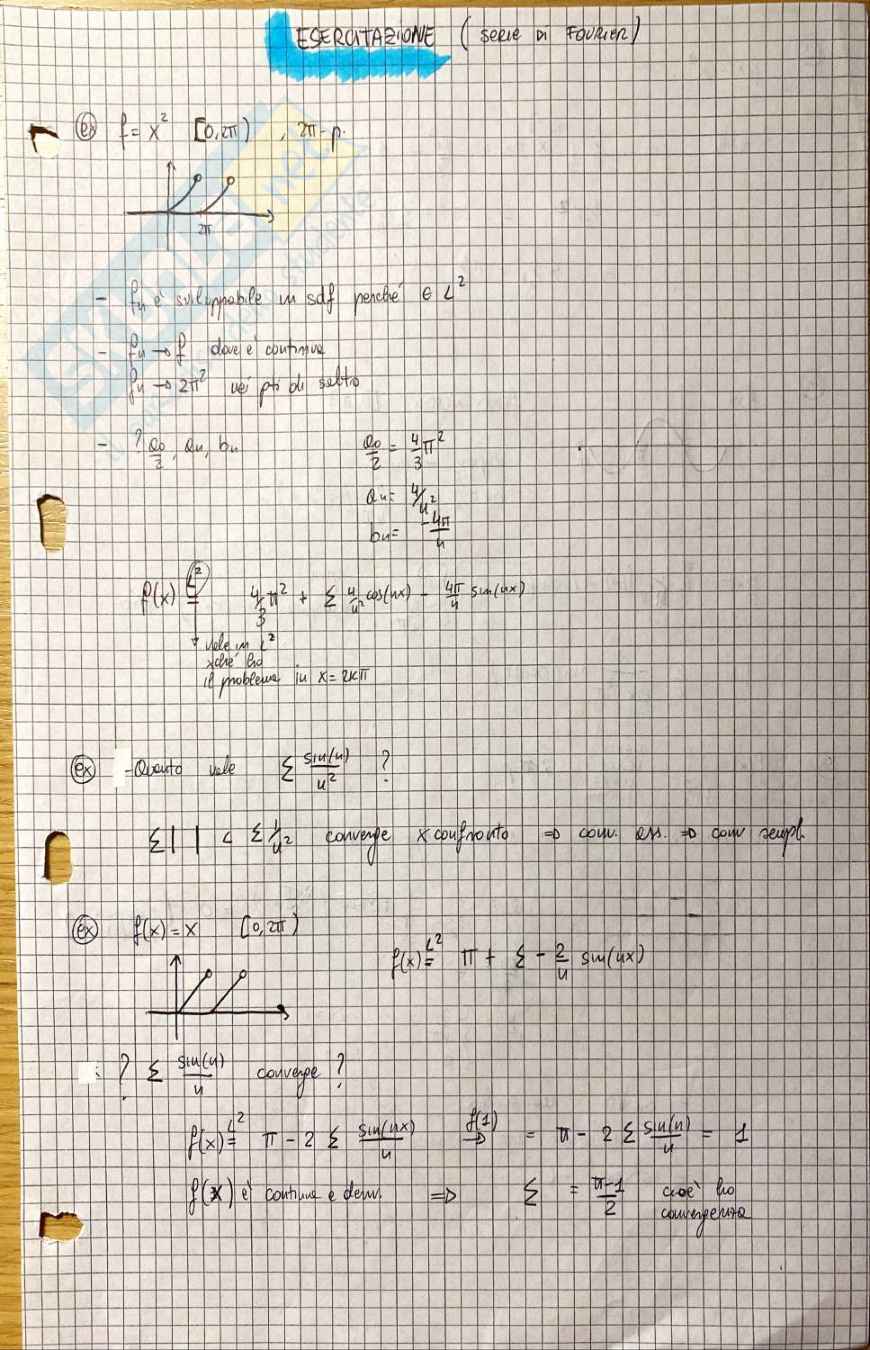 ESERCITAZIONE ( SERIE DI FOURIER)
ex f = x² [0,2π) , 2π-p.
2π
- fn è sviluppabile in sdf perché ∈ L²
- fn → f dove è continua
fn → 2π² nei pti di salto
- ? a0/2, an, bn a0/2 = 4/3 π²
an = 4/n²
bn = -4π/n
f(x) =^L² 4/3 π² + Σ 4/n² cos(nx) - 4π/n sin(nx)
↓ vale in L²
xché ho
il problema in x = 2kπ
ex - Quanto vale Σ sin(n)/n² ?
Σ| | < Σ 1/n² converge x confronto ⇒ conv. ass. ⇒ conv sempl.
ex f(x) = x [0,2π) f(x) =^L² π + Σ - 2/n sin(nx)
: ? Σ sin(n)/n converge ?
f(x) =^L² π - 2 Σ sin(nx)/n f(1) ⇒ = π - 2 Σ sin(n)/n = 1
f(x) è continua e deriv. ⇒ Σ = π-1/2 cioè ho
convergenza